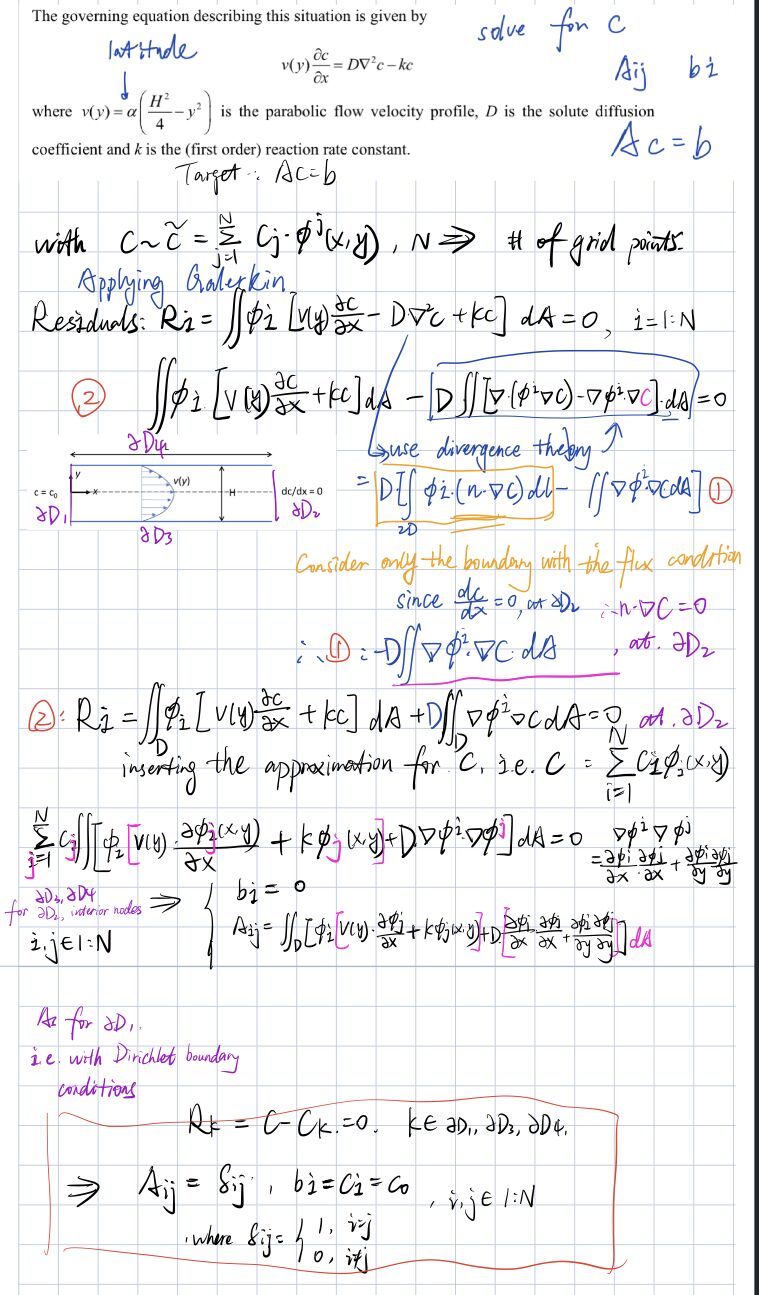 The governing equation describing this situation is given by
solve for C
latitude
v(y) ∂c/∂x = D∇²c − kc
Aij bi
where v(y) = α(H²/4 − y²) is the parabolic flow velocity profile, D is the solute diffusion
coefficient and k is the (first order) reaction rate constant.
Ac = b
Target: Ac=b
with C ~ c̃ = Σ_{j=1}^{N} Cj·φ^j(x,y), N ⇒ # of grid points.
Applying Galerkin
Residuals: Ri = ∬φi [v(y) ∂c/∂x − D∇²c + kc] dA = 0, i=1:N
② ∬φi [v(y) ∂c/∂x + kc] dA − [D∬[∇·(φ^i∇c) − ∇φ^i·∇c]·dA] = 0
↳ use divergence theory
= D[∬_{∂D} φi·(n·∇c) dl − ∬∇φ^i·∇c dA] ①
∂D4
c = c₀ y x v(y) H dc/dx = 0
∂D1 ∂D2
∂D3
Consider only the boundary with the flux condition
since dc/dx = 0, at ∂D2 ∴ n·∇C = 0
∴ ①: −D∬∇φ^i·∇C·dA , at. ∂D2
②: Ri = ∬_D φi [v(y) ∂c/∂x + kc] dA + D∬_D ∇φ^i∇c dA = 0, at. ∂D2
inserting the approximation for C, i.e. C = Σ_{i=1}^{N} Ci φi(x,y)
Σ_{j=1}^{N} Cj∬[φi [v(y)· ∂φj(x,y)/∂x + kφj(x,y)] + D∇φ^i·∇φ^j] dA = 0 ∇φ^i ∇φ^j
= ∂φi/∂x ∂φj/∂x + ∂φi/∂y ∂φj/∂y
∂D3, ∂D4
for ∂D2, interior nodes ⇒ { bi = 0
i,j ∈ 1:N
Aij = ∬_D [φi [v(y)· ∂φj/∂x + kφj(x,y)] + D·[∂φi/∂x ∂φj/∂x + ∂φi/∂y ∂φj/∂y]] dA
As for ∂D1.
i.e. with Dirichlet boundary
conditions
Rk = C − Ck = 0. k ∈ ∂D1, ∂D3, ∂D4.
⇒ Aij = δij, bi = Ci = C0, i,j ∈ 1:N
, where δij = { 1, i=j
0, i≠j